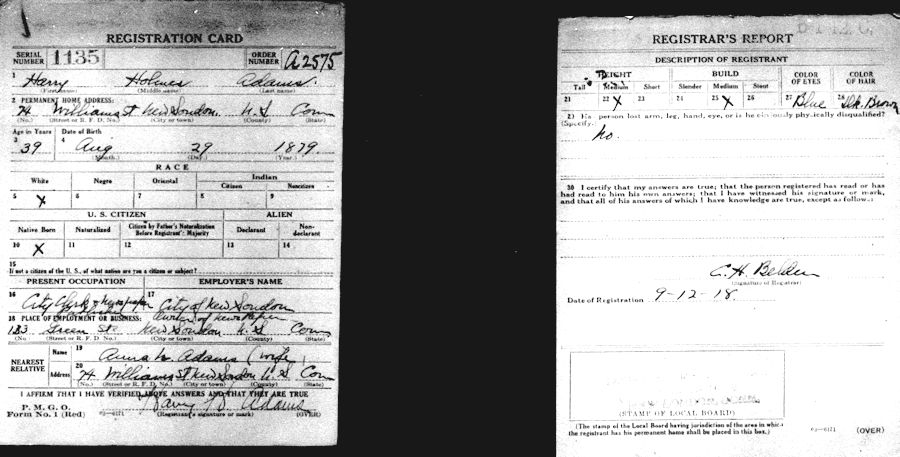 REGISTRATION CARD
SERIAL NUMBER 1135 ORDER NUMBER A2575
1 Harry Holmes Adams.
(First name) (Middle name) (Last name)
2 PERMANENT HOME ADDRESS:
74 Williams St New London. N. L Conn
(No.) (Street or R. F. D. No.) (City or town) (County) (State)
Age in Years Date of Birth
3 39 4 Aug 29 1879
(Month.) (Day.) (Year.)
RACE
White Negro Oriental Indian
Citizen Noncitizen
5 X 6 7 8 9
U. S. CITIZEN ALIEN
Native Born Naturalized Citizen by Father's Naturalization Before Registrant's Majority Declarant Non-declarant
10 X 11 12 13 14
15
If not a citizen of the U. S., of what nation are you a citizen or subject?
PRESENT OCCUPATION EMPLOYER'S NAME
16 City Clerk & Newspaper 17 City of New London
Owner of Newspaper
18 PLACE OF EMPLOYMENT OR BUSINESS:
183 Green St New London N. L Conn
(No.) (Street or R. F. D. No.) (City or town) (County) (State)
NEAREST RELATIVE
Name 19 Anna Adams (wife)
Address 20 74 Williams St New London N. L Conn
(No.) (Street or R. F. D. No.) (City or town) (County) (State)
I AFFIRM THAT I HAVE VERIFIED ABOVE ANSWERS AND THAT THEY ARE TRUE
P. M. G. O.
Form No. 1 (Red) 03—6171 Harry H. Adams
(Registrant's signature or mark) (OVER)
REGISTRAR'S REPORT
DESCRIPTION OF REGISTRANT
HEIGHT BUILD COLOR OF EYES COLOR OF HAIR
Tall Medium Short Slender Medium Stout
21 22 X 23 24 25 X 26 27 Blue 28 Dk. Brown
29 Has person lost arm, leg, hand, eye, or is he obviously physically disqualified?
(Specify.)
no.
30 I certify that my answers are true; that the person registered has read or has
had read to him his own answers; that I have witnessed his signature or mark,
and that all of his answers of which I have knowledge are true, except as follows:
C. H. Belden
(Signature of Registrar)
Date of Registration 9-12-18.
(STAMP OF LOCAL BOARD)
(The stamp of the Local Board having jurisdiction of the area in which
the registrant has his permanent home shall be placed in this box.)
03—6171 (OVER)